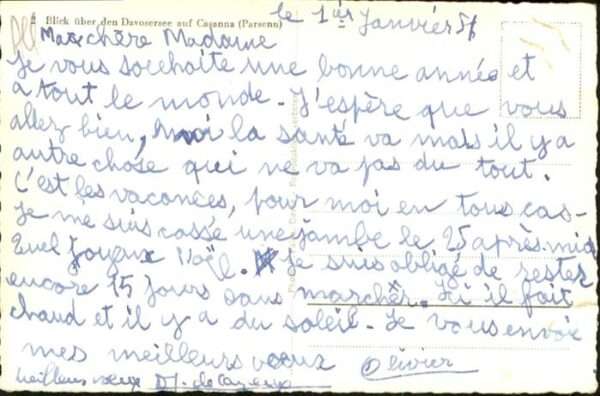 Blick über den Davosersee auf Casanna (Parsenn)
le 1er Janvier 5
Ma chère Madame
Je vous souchaite une bonne année et
a tout le monde - J'espère que vous
allez bien, moi la santé va mais il y a
autre chose qui ne va pas du tout.
C'est les vacances, pour moi en tous cas -
Je me suis cassé une jambe le 25 après-midi
Quel Joyeux Noël. Je suis obligé de rester
encore 15 Jours sans marcher. Ici il fait
chaud et il y a du soleil - Je vous envoie
mes meilleurs voeux Olivier
meilleurs voeux